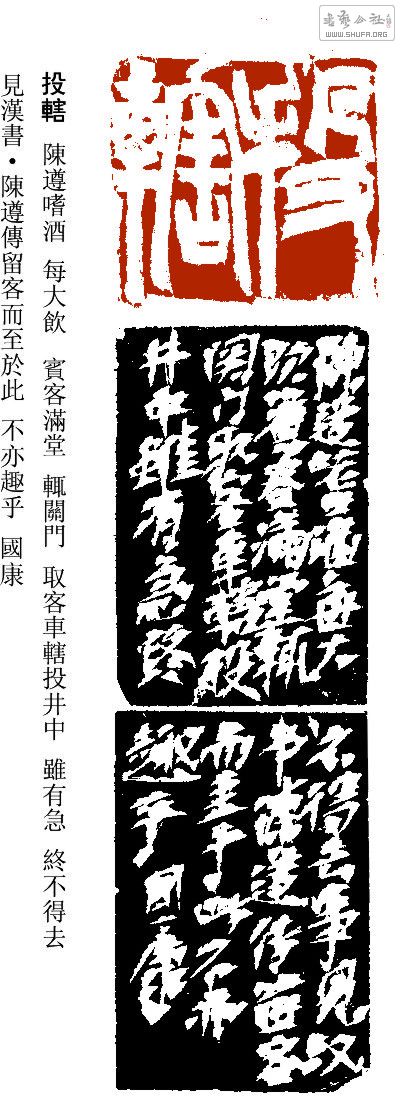 書藝公社
WWW.SHUFA.ORG
投轄
陳遵嗜酒每大
飲賓客滿堂輒
関门取客車轄投
井中雖有急終
不得去事見汉
书陳遵傳留客
而至于此不亦
趣乎國康
投轄 陳遵嗜酒 每大飲 賓客滿堂 輒關門 取客車轄投井中 雖有急 終不得去
見漢書・陳遵傳留客而至於此 不亦趣乎 國康